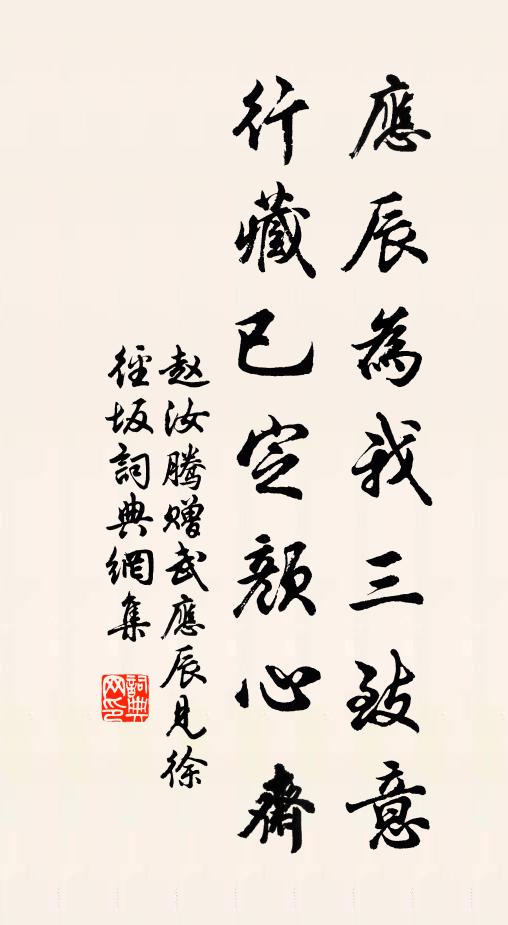 應辰為我三致意
行藏已定顏心齋
赵汝腾赠武應辰見徐
徑坂詞典網集
詞典
网印